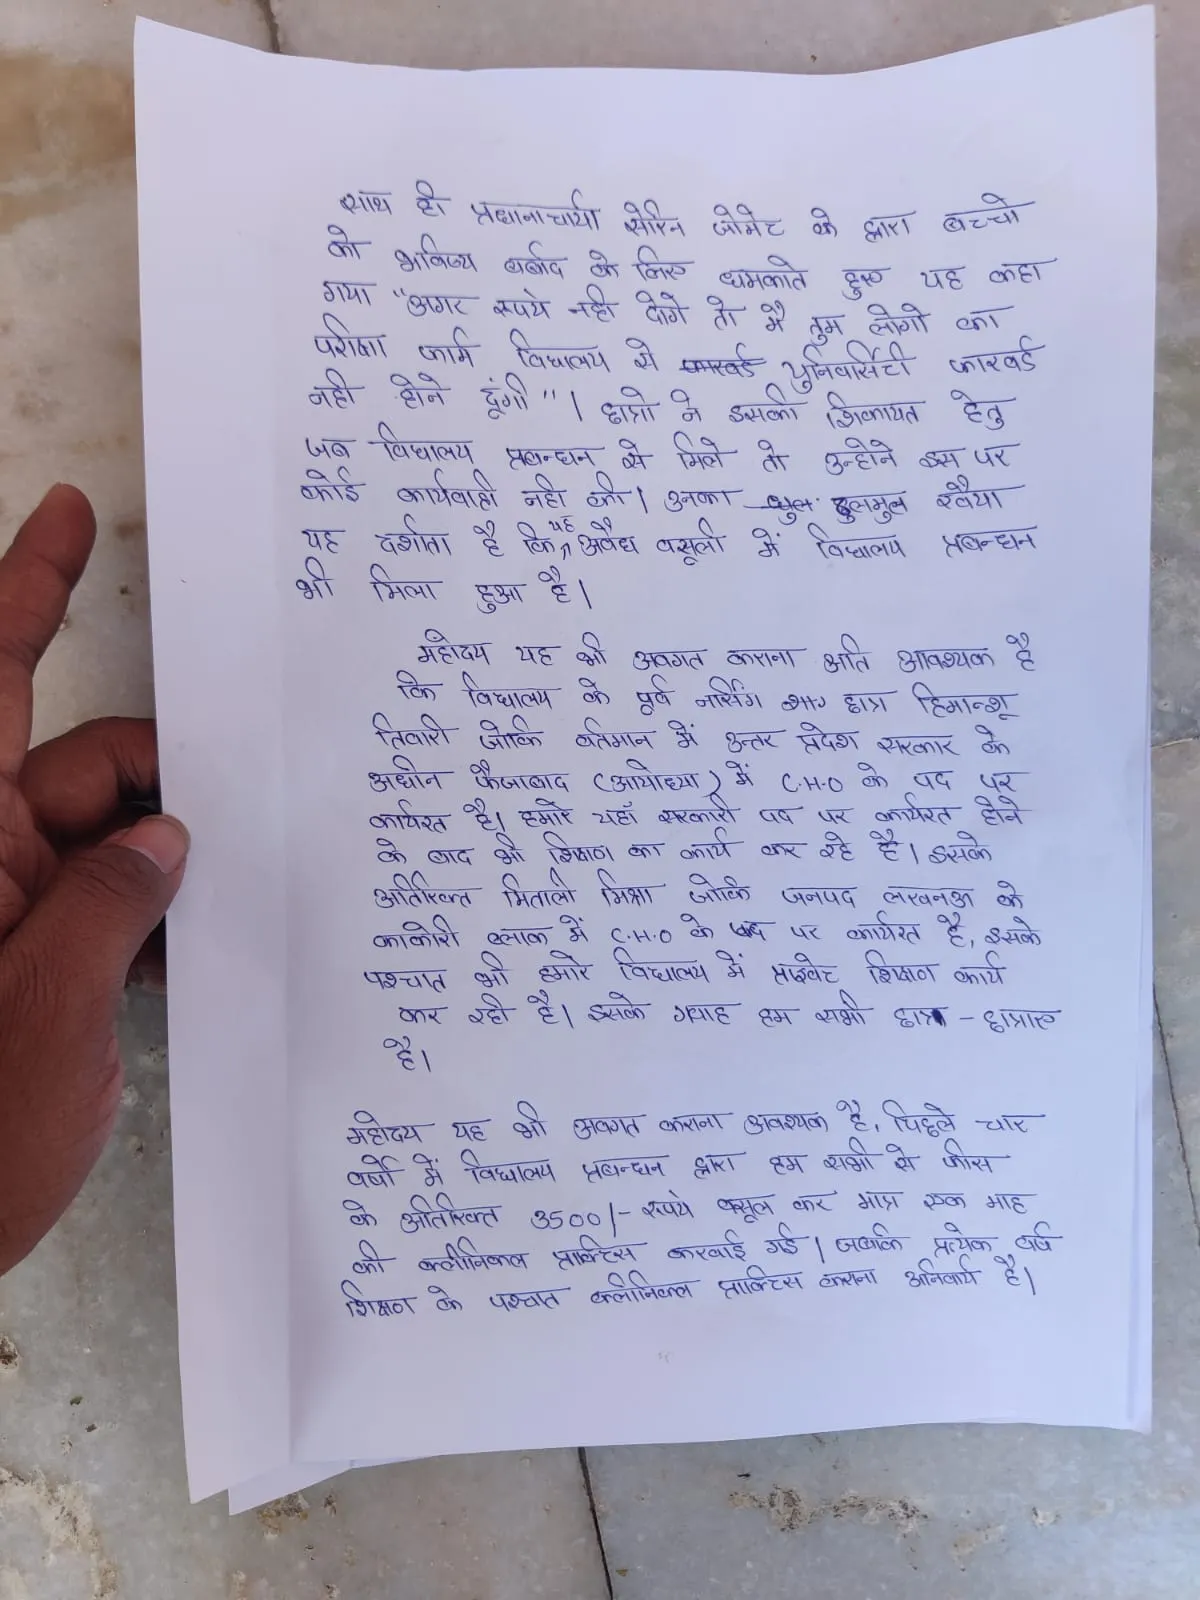 साथ ही प्रधानाचार्या सेरिन जोमेट के द्वारा बच्चो
को भविष्य बर्बाद के लिए धमकाते हुए यह कहा
गया "अगर रुपये नही दोगे तो मै तुम लोगो का
परीक्षा फार्म विद्यालय से युनिवर्सिटी फारवर्ड
नही होने दूंगी"। छात्रो ने इसकी शिकायत हेतु
जब विद्यालय प्रबन्धन से मिले तो उन्होने इस पर
कोई कार्यवाही नही की। उनका ढुलमुल रवैया
यह दर्शाता है कि यह अवैध वसूली में विद्यालय प्रबन्धन
भी मिला हुआ है।
महोदय यह भी अवगत कराना अति आवश्यक है
कि विद्यालय के पूर्व नर्सिंग छात्र हिमान्शू
तिवारी जोकि वर्तमान में उत्तर प्रदेश सरकार के
अधीन फैजाबाद (आयोध्या) में C.H.O के पद पर
कार्यरत है। हमारे यहाँ सरकारी पद पर कार्यरत होने
के बाद भी शिक्षण का कार्य कर रहे है। इसके
अतिरिक्त मिताली मिश्रा जोकि जनपद लखनऊ के
काकोरी ब्लाक में C.H.O के पद पर कार्यरत है, इसके
पश्चात भी हमारे विद्यालय में प्राइवेट शिक्षण कार्य
कर रही है। इसके गवाह हम सभी छात्र - छात्राए
है।
महोदय यह भी अवगत कराना अवश्यक है, पिछले चार
वर्षो में विद्यालय प्रबन्धन द्वारा हम सभी से फीस
के अतिरिक्त 3500/- रुपये वसूल कर मात्र एक माह
की क्लीनिकल प्राक्टिस करवाई गई। जबकि प्रत्येक वर्ष
शिक्षण के पश्चात क्लीनिकल प्राक्टिस कराना अनिवार्य है।